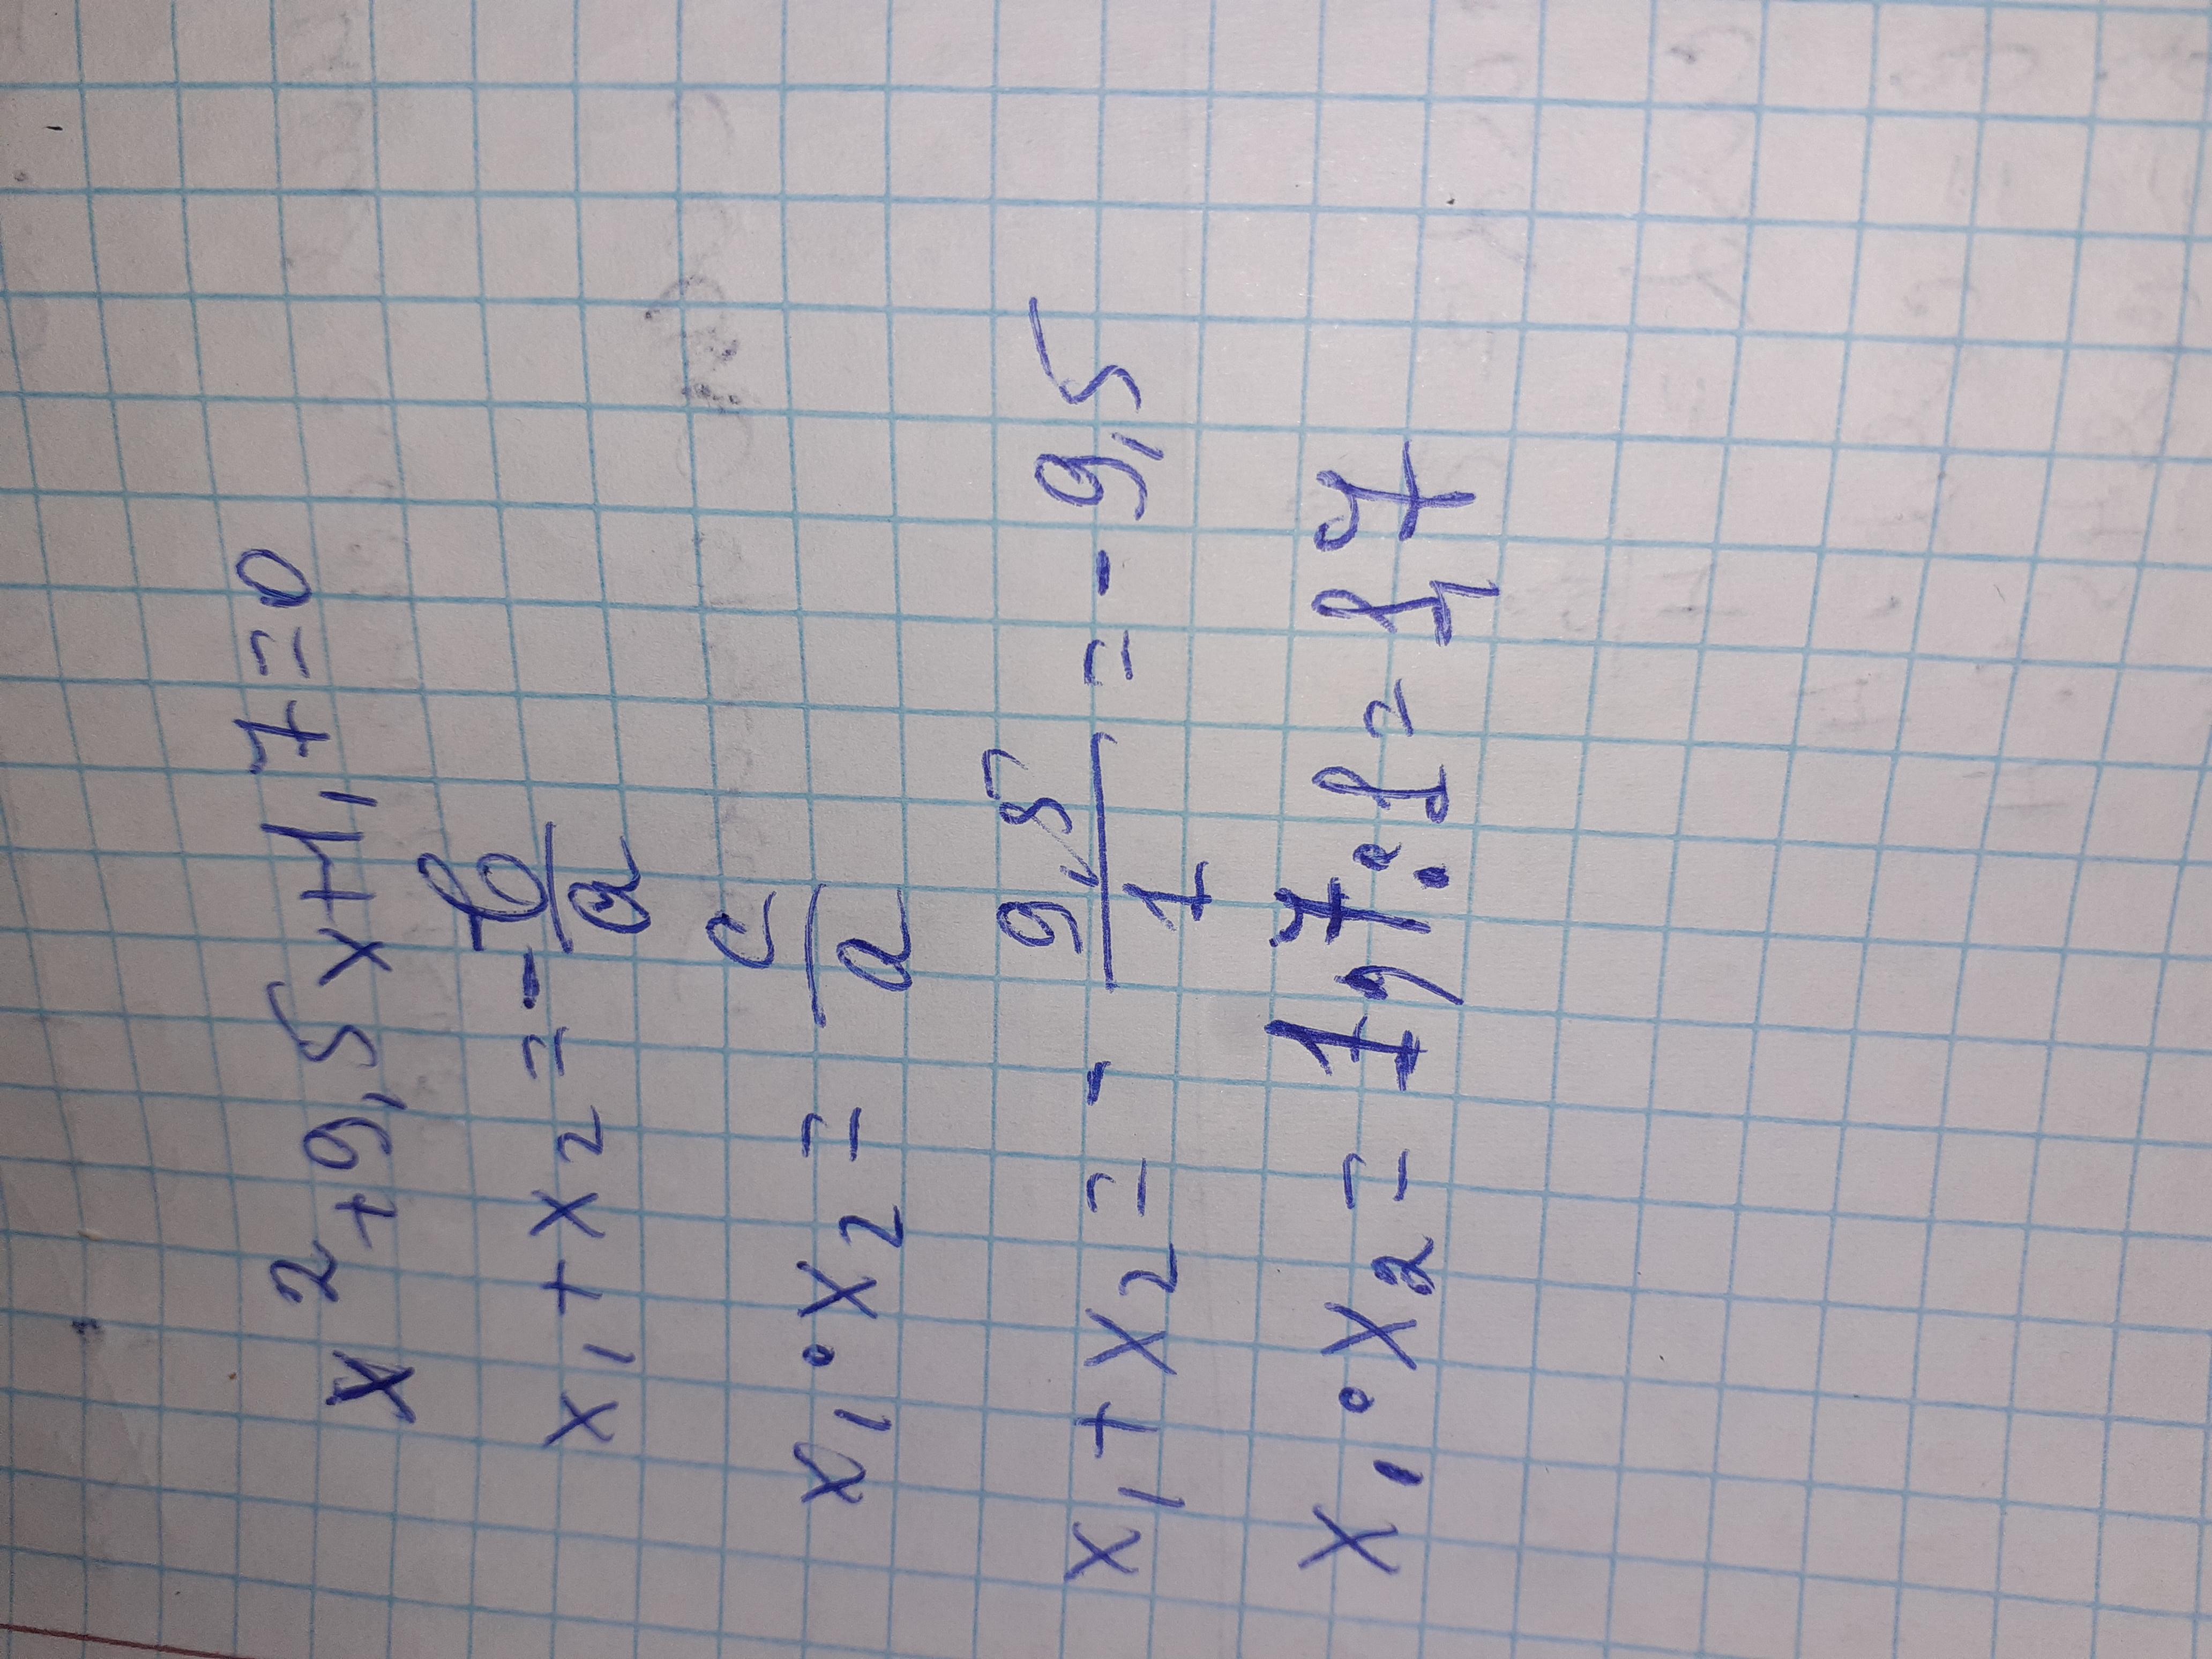 x² + 9,5x + 1,7 = 0
x₁ + x₂ = - b/a
x₁ · x₂ = c/a
x₁ + x₂ = - 9,5/1 = - 9,5
x₁ · x₂ = 1,7 : 1 = 1,7